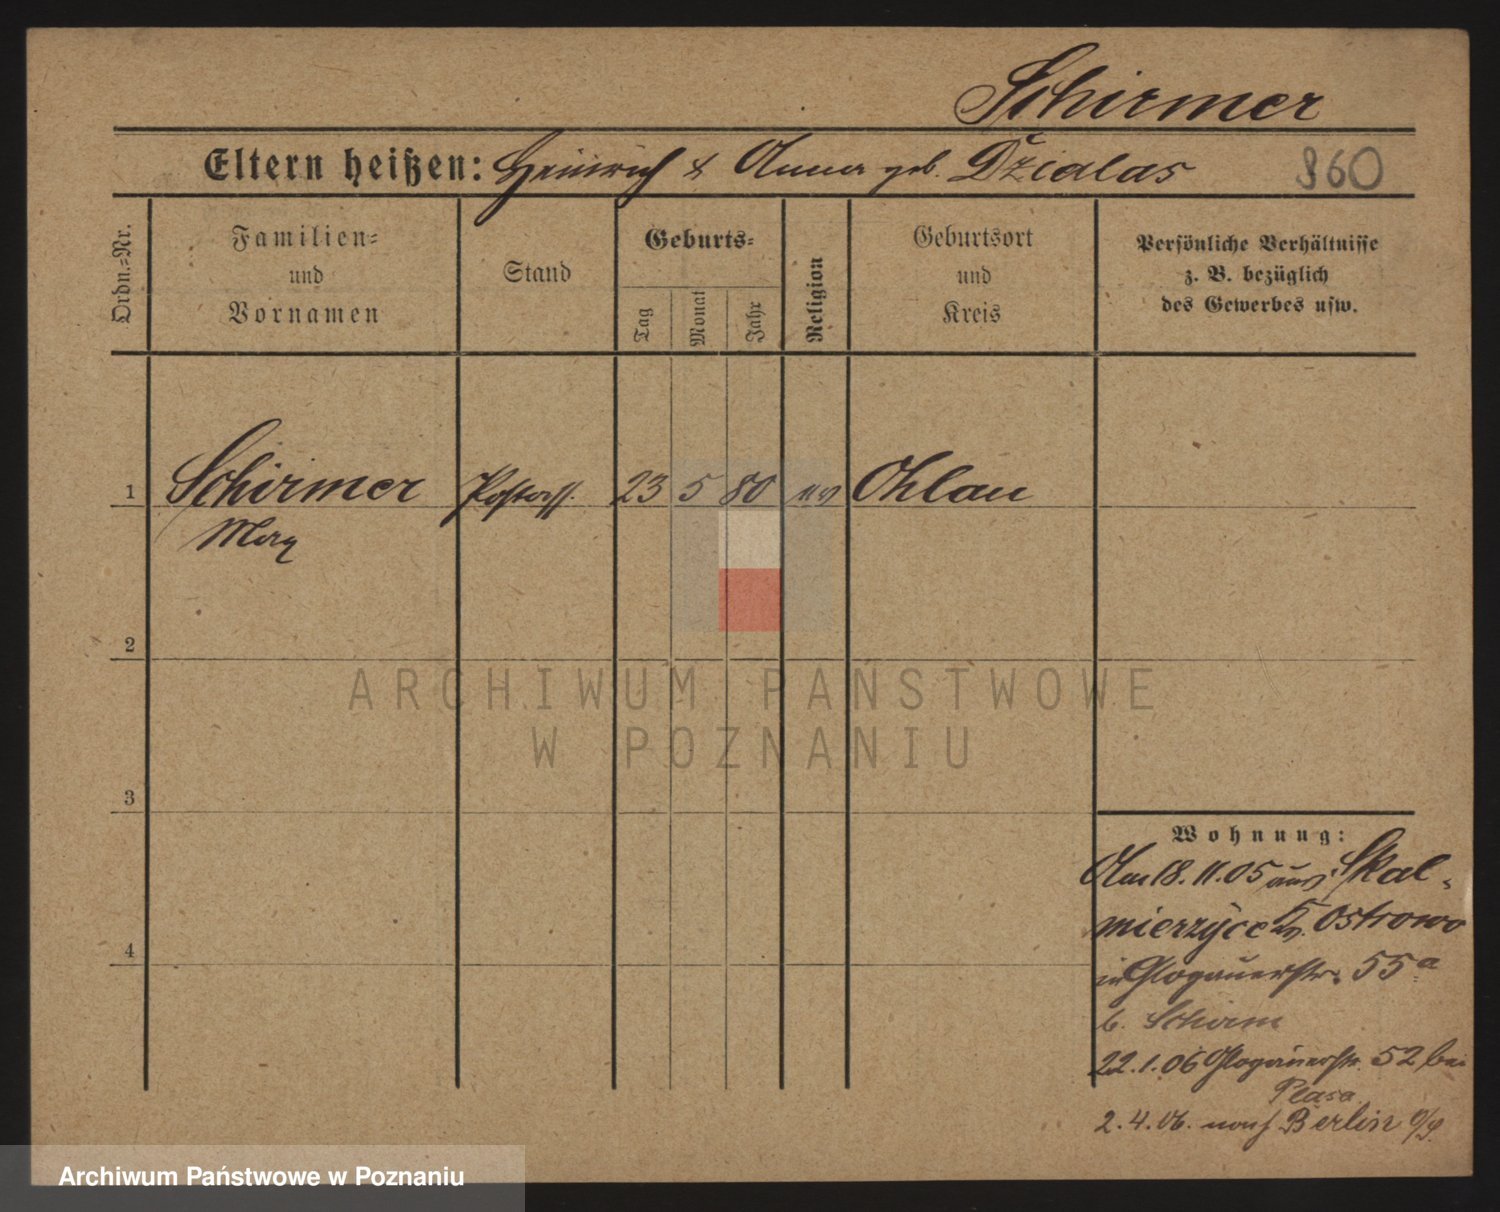 Schirmer
Eltern heißen: Heinrich & Anna geb. Dzialas 960
Ordn.-Nr.
Familien-
und
Vornamen
Stand
Geburts-
Tag
Monat
Jahr
Religion
Geburtsort
und
Kreis
Persönliche Verhältnisse
z. B. bezüglich
des Gewerbes usw.
1 Schirmer Postass. 23 5 80 ev Ohlau
Max
2
3
4
Wohnung:
Am 18.11.05 aus Skal-
mierzyce Kr. Ostrowo
in Glogauerstr. 55a
b. Schirm
22.1.06 Glogauerstr. 52 bei
2.4.06. nach Berlin
ARCHIWUM PAŃSTWOWE
W POZNANIU
Archiwum Państwowe w Poznaniu